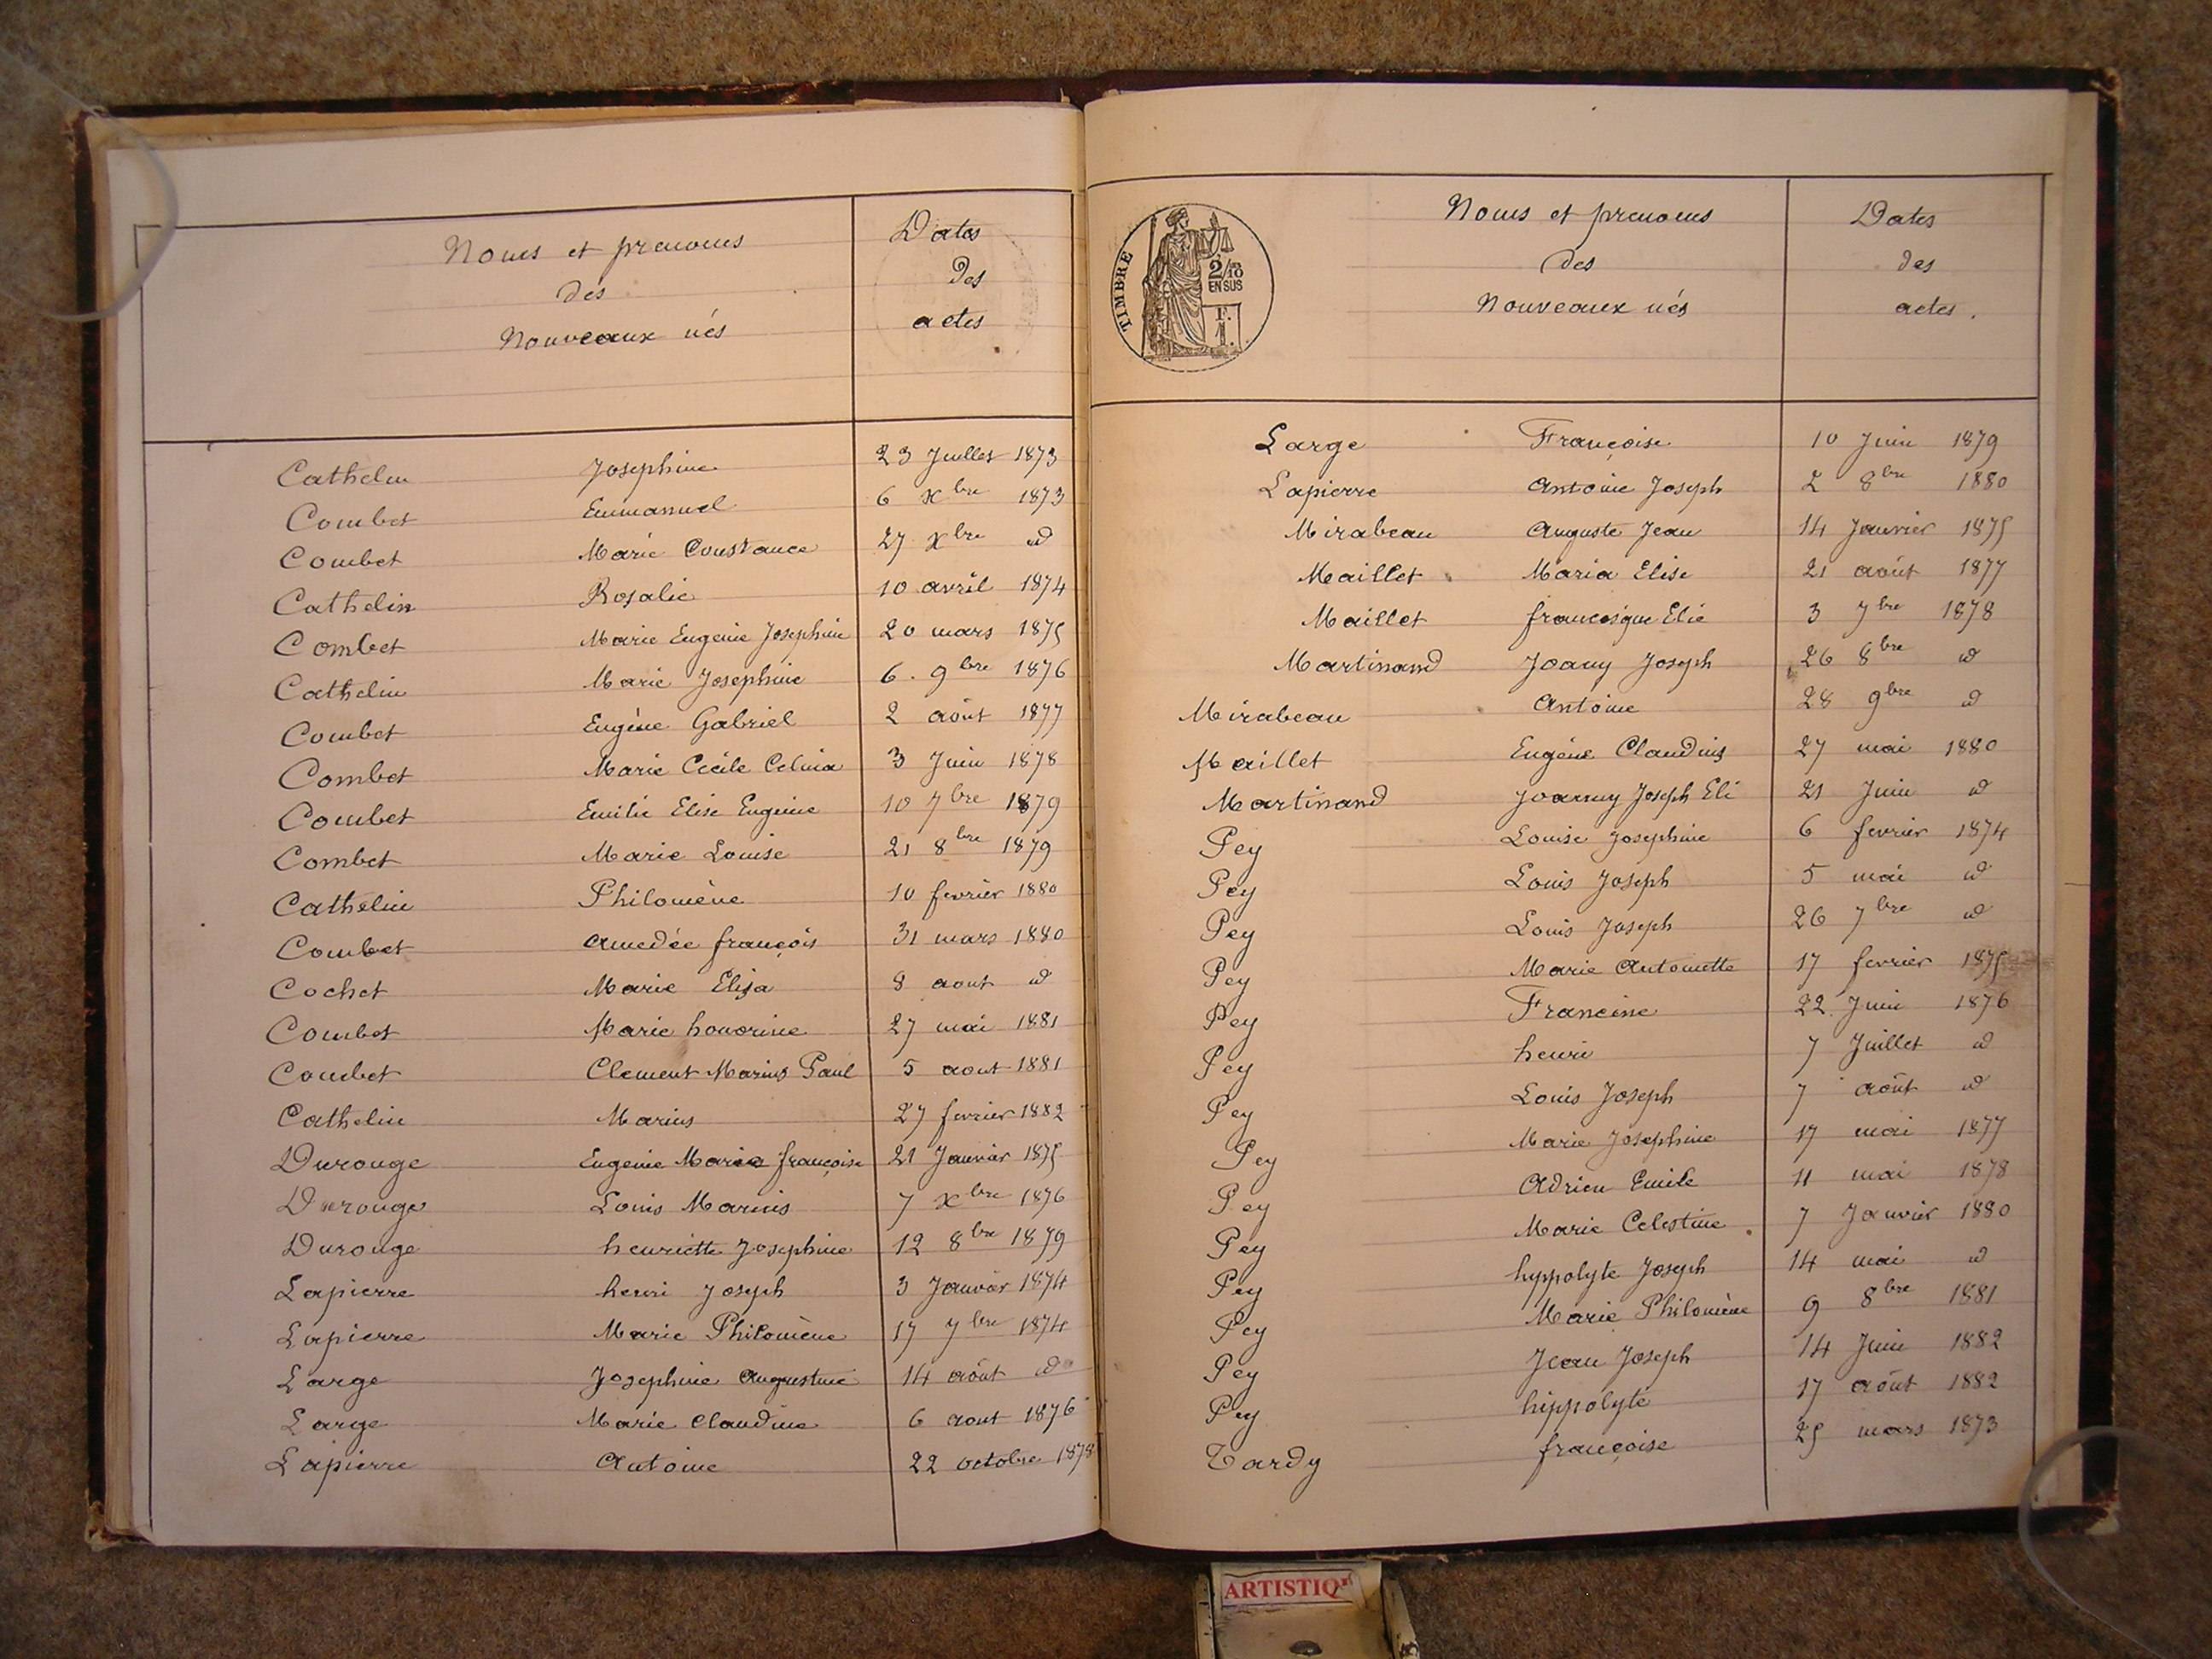 Noms et prenoms
des
Nouveaux nés
Dates
des
actes
Cathelin Josephine 23 Juillet 1873
Combet Emmanuel 6 Xbre 1873
Combet Marie Constance 27 Xbre d
Cathelin Rosalie 10 avril 1874
Combet Marie Eugenie Josephine 20 mars 1875
Cathelin Marie Josephine 6. 9bre 1876
Combet Eugène Gabriel 2 août 1877
Combet Marie Cécile Celina 3 Juin 1878
Combet Emilie Elise Eugenie 10 7bre 1879
Combet Marie Louise 21 8bre 1879
Cathelin Philomène 10 fevrier 1880
Combet Amedée françois 31 mars 1880
Cochet Marie Eliza 8 aout d
Combet Marie honorine 27 mai 1881
Combet Clement Marius Paul 5 aout 1881
Cathelin Marius 27 fevrier 1882
Durouge Eugenie Marie françoise 21 Janvier 1875
Durouge Louis Marius 7 Xbre 1876
Durouge henriette Josephine 12 8bre 1879
Lapierre henri Joseph 3 Janvier 1874
Lapierre Marie Philomène 17 7bre 1874
Large Josephine Augustine 14 août d
Large Marie Claudine 6 aout 1876
Lapierre Antoine 22 octobre 1878
TIMBRE
2/10
EN SUS
1 F.
Noms et prenoms
des
Nouveaux nés
Dates
des
actes.
Large Françoise 10 Juin 1879
Lapierre Antoine Joseph 2 8bre 1880
Mirabeau Auguste Jean 14 Janvier 1875
Maillet Maria Elise 21 août 1877
Maillet francisque Elie 3 7bre 1878
Martinand Joany Joseph 26 8bre d
Mirabeau Antoine 28 9bre d
Maillet Eugène Claudius 27 mai 1880
Martinand Joanny Joseph Eli 21 Juin d
Pey Louise Josephine 6 fevrier 1874
Pey Louis Joseph 5 mai d
Pey Louis Joseph 26 7bre d
Pey Marie Antoinette 17 fevrier 1875
Pey Francine 22 Juin 1876
Pey henri 7 Juillet d
Pey Louis Joseph 7 août d
Pey Marie Josephine 17 mai 1877
Pey Adrien Emile 11 mai 1878
Pey Marie Celestine 7 Janvier 1880
Pey hyppolyte Joseph 14 mai d
Pey Marie Philomène 9 8bre 1881
Pey Jean Joseph 14 Juin 1882
Pey hippolyte 17 août 1882
Tardy françoise 25 mars 1873
ARTISTIQ